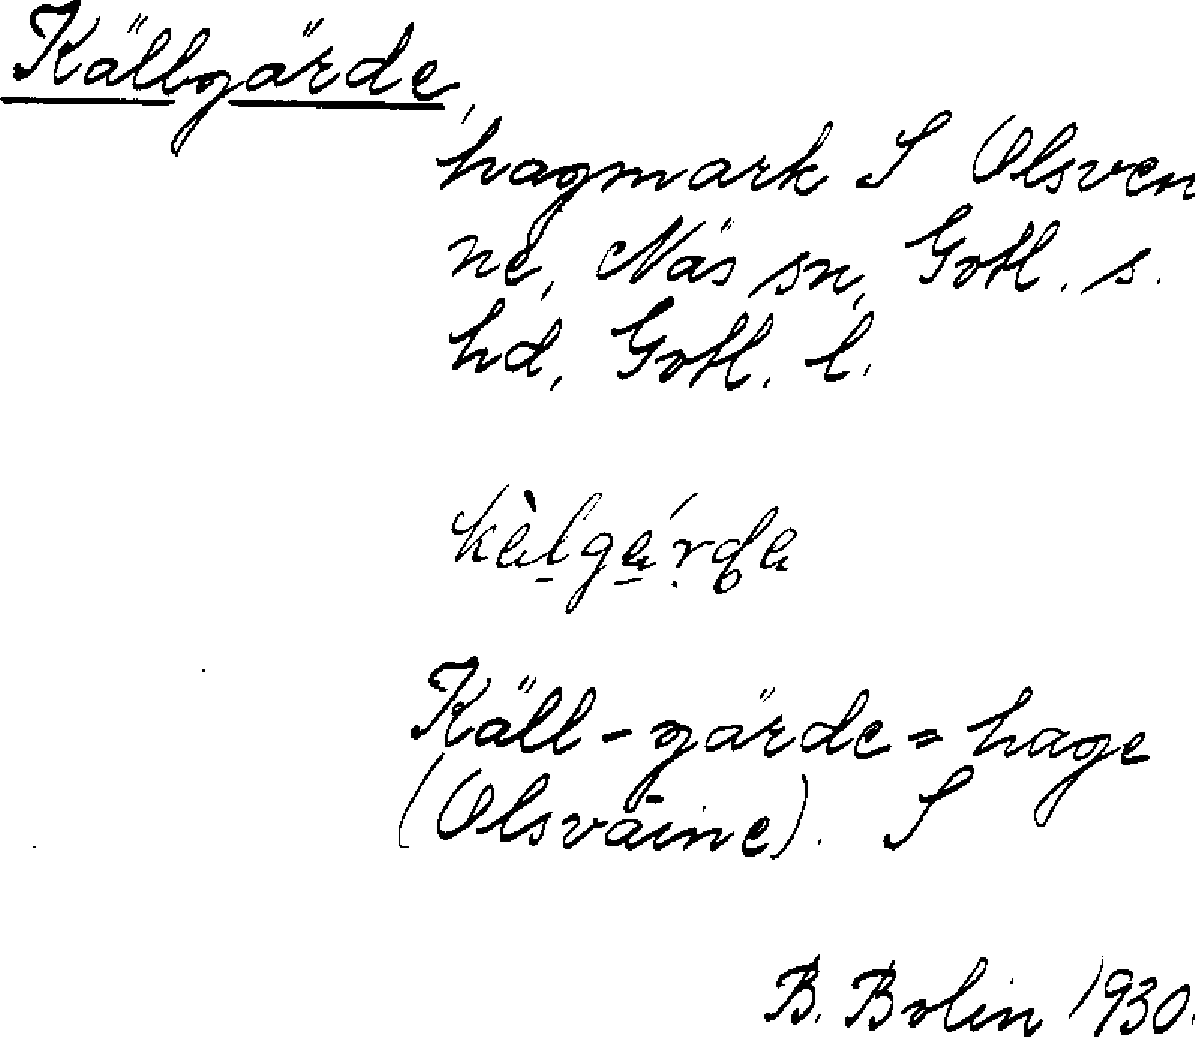 Källgärde,
hagmark S Olsven
ne, Näs sn, Gotl. s.
hd, Gotl. l.
Käll-gärde = hage
(Olsväine). S
B. Bolin 1930.